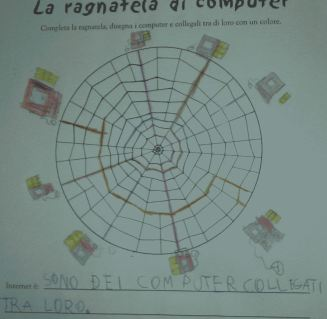 La ragnatela di computer
Completa la ragnatela, disegna i computer e collegali tra di loro con un colore.
Internet è: SONO DEI COMPUTER COLLEGATI
TRA LORO.